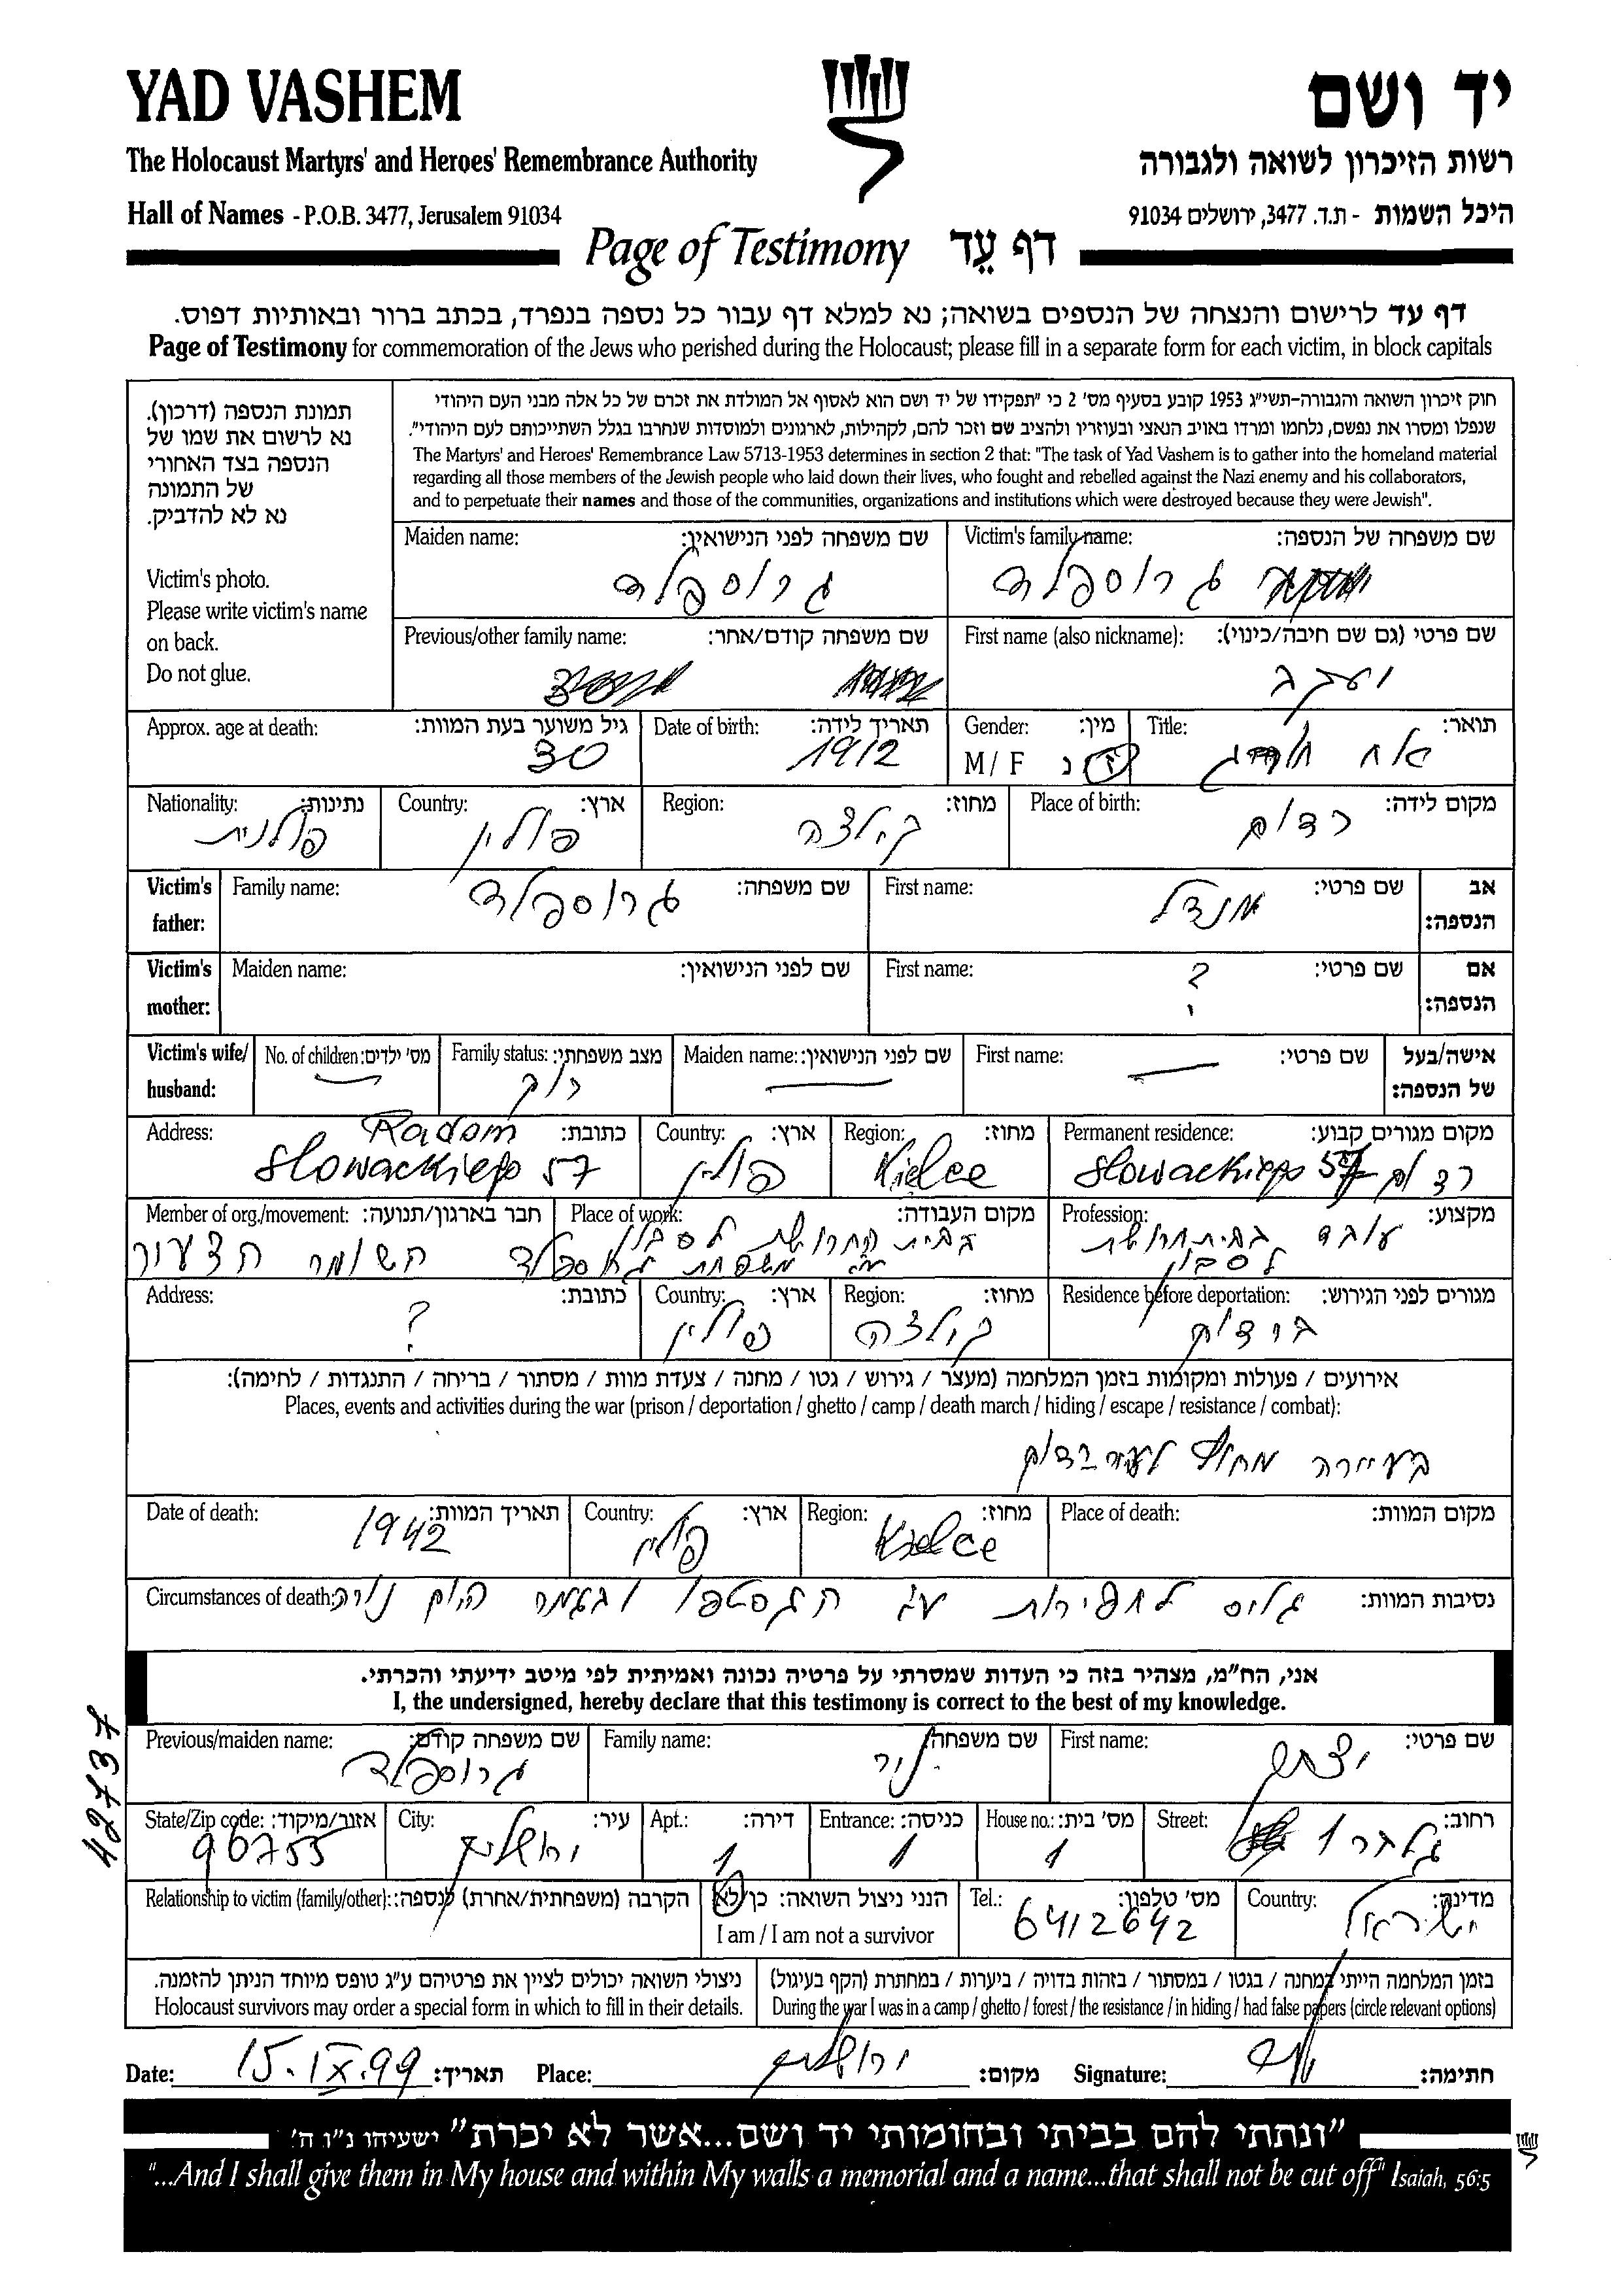 YAD VASHEM
יד ושם
The Holocaust Martyrs' and Heroes' Remembrance Authority
רשות הזיכרון לשואה ולגבורה
Hall of Names - P.O.B. 3477, Jerusalem 91034
היכל השמות - ת.ד. 3477, ירושלים 91034
Page of Testimony דף עֵד
דף עד לרישום והנצחה של הנספים בשואה; נא למלא דף עבור כל נספה בנפרד, בכתב ברור ובאותיות דפוס.
Page of Testimony for commemoration of the Jews who perished during the Holocaust; please fill in a separate form for each victim, in block capitals
תמונת הנספה (דרכון).
נא לרשום את שמו של
הנספה בצד האחורי
של התמונה
נא לא להדביק.
Victim's photo.
Please write victim's name
on back.
Do not glue.
חוק זיכרון השואה והגבורה-תשי"ג 1953 קובע בסעיף מס' 2 כי "תפקידו של יד ושם הוא לאסוף אל המולדת את זכרם של כל אלה מבני העם היהודי
שנפלו ומסרו את נפשם, נלחמו ומרדו באויב הנאצי ובעוזריו ולהציב שם וזכר להם, לקהילות, לארגונים ולמוסדות שנחרבו בגלל השתייכותם לעם היהודי".
The Martyrs' and Heroes' Remembrance Law 5713-1953 determines in section 2 that: "The task of Yad Vashem is to gather into the homeland material
regarding all those members of the Jewish people who laid down their lives, who fought and rebelled against the Nazi enemy and his collaborators,
and to perpetuate their names and those of the communities, organizations and institutions which were destroyed because they were Jewish".
Victim's family name: שם משפחה של הנספה:
גרוספלד
Maiden name: שם משפחה לפני הנישואין:
גרוספלד
First name (also nickname): שם פרטי (גם שם חיבה/כינוי):
יעקב
Previous/other family name: שם משפחה קודם/אחר:
Title: תואר:
אח
Gender: מין:
M / F ז נ
Date of birth: תאריך לידה:
1912
Approx. age at death: גיל משוער בעת המוות:
30
Place of birth: מקום לידה:
רדום
Region: מחוז:
קילצה
Country: ארץ:
פולין
Nationality: נתינות:
פולנית
Victim's father: אב הנספה:
First name: שם פרטי:
מנדל
Family name: שם משפחה:
גרוספלד
Victim's mother: אם הנספה:
First name: שם פרטי:
?
Maiden name: שם לפני הנישואין:
Victim's wife/ husband: אישה/בעל של הנספה:
First name: שם פרטי:
—
Maiden name: שם לפני הנישואין:
—
Family status: מצב משפחתי:
רווק
No. of children: מס' ילדים:
—
Permanent residence: מקום מגורים קבוע:
רדום Slowackiego 57
Region: מחוז:
Kielce
Country: ארץ:
פולין
Address: כתובת:
Radom
Slowackiego 57
Profession: מקצוע:
עובד בבית חרושת
לסבון
Place of work: מקום העבודה:
בבית החרושת לסבון
של משפחת גרוספלד
Member of org./movement: חבר בארגון/תנועה:
השומר הצעיר
Residence before deportation: מגורים לפני הגירוש:
ברדום
Region: מחוז:
קילצה
Country: ארץ:
פולין
Address: כתובת:
?
אירועים / פעולות ומקומות בזמן המלחמה (מעצר / גירוש / גטו / מחנה / צעדת מוות / מסתור / בריחה / התנגדות / לחימה):
Places, events and activities during the war (prison / deportation / ghetto / camp / death march / hiding / escape / resistance / combat):
בעיירה מחוץ לעיר רדום
Place of death: מקום המוות:
Region: מחוז:
Kielce
Country: ארץ:
פולין
Date of death: תאריך המוות:
1942
Circumstances of death: נסיבות המוות:
גויס לחפירות ע"י הגסטפו ובגמר היום נורה
אני, הח"מ, מצהיר בזה כי העדות שמסרתי על פרטיה נכונה ואמיתית לפי מיטב ידיעתי והכרתי.
I, the undersigned, hereby declare that this testimony is correct to the best of my knowledge.
First name: שם פרטי:
יצחק
Family name: שם משפחה:
ניר
Previous/maiden name: שם משפחה קודם:
גרוספלד
Street: רחוב:
1
House no.: מס' בית:
1
Entrance: כניסה:
1
Apt.: דירה:
1
City: עיר:
ירושלים
State/Zip code: אזור/מיקוד:
96755
Country: מדינה:
ישראל
Tel.: מס' טלפון:
6412642
הנני ניצול השואה: כן/לא
I am / I am not a survivor
Relationship to victim (family/other): הקרבה (משפחתית/אחרת) לנספה:
בזמן המלחמה הייתי במחנה / בגטו / במסתור / בזהות בדויה / ביערות / במחתרת (הקף בעיגול)
During the war I was in a camp / ghetto / forest / the resistance / in hiding / had false papers (circle relevant options)
ניצולי השואה יכולים לציין את פרטיהם ע"ג טופס מיוחד הניתן להזמנה.
Holocaust survivors may order a special form in which to fill in their details.
Date: 15.IX.99 תאריך:
Place: ירושלים מקום:
Signature: חתימה:
42737
"ונתתי להם בביתי ובחומותי יד ושם...אשר לא יכרת" ישעיהו נ"ו ה'
"...And I shall give them in My house and within My walls a memorial and a name...that shall not be cut off" Isaiah, 56:5